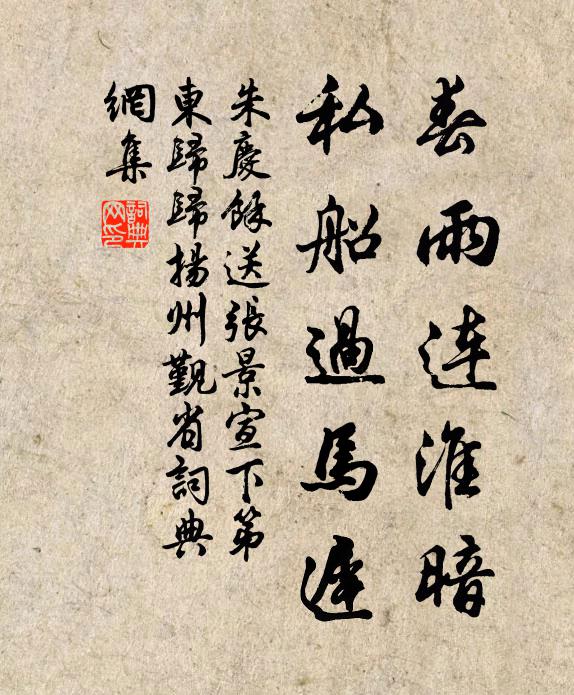 春雨連淮暗
私船過馬遲
朱慶餘送張景宣下第
東歸歸揚州覲省詞典
網集
詞典
网印